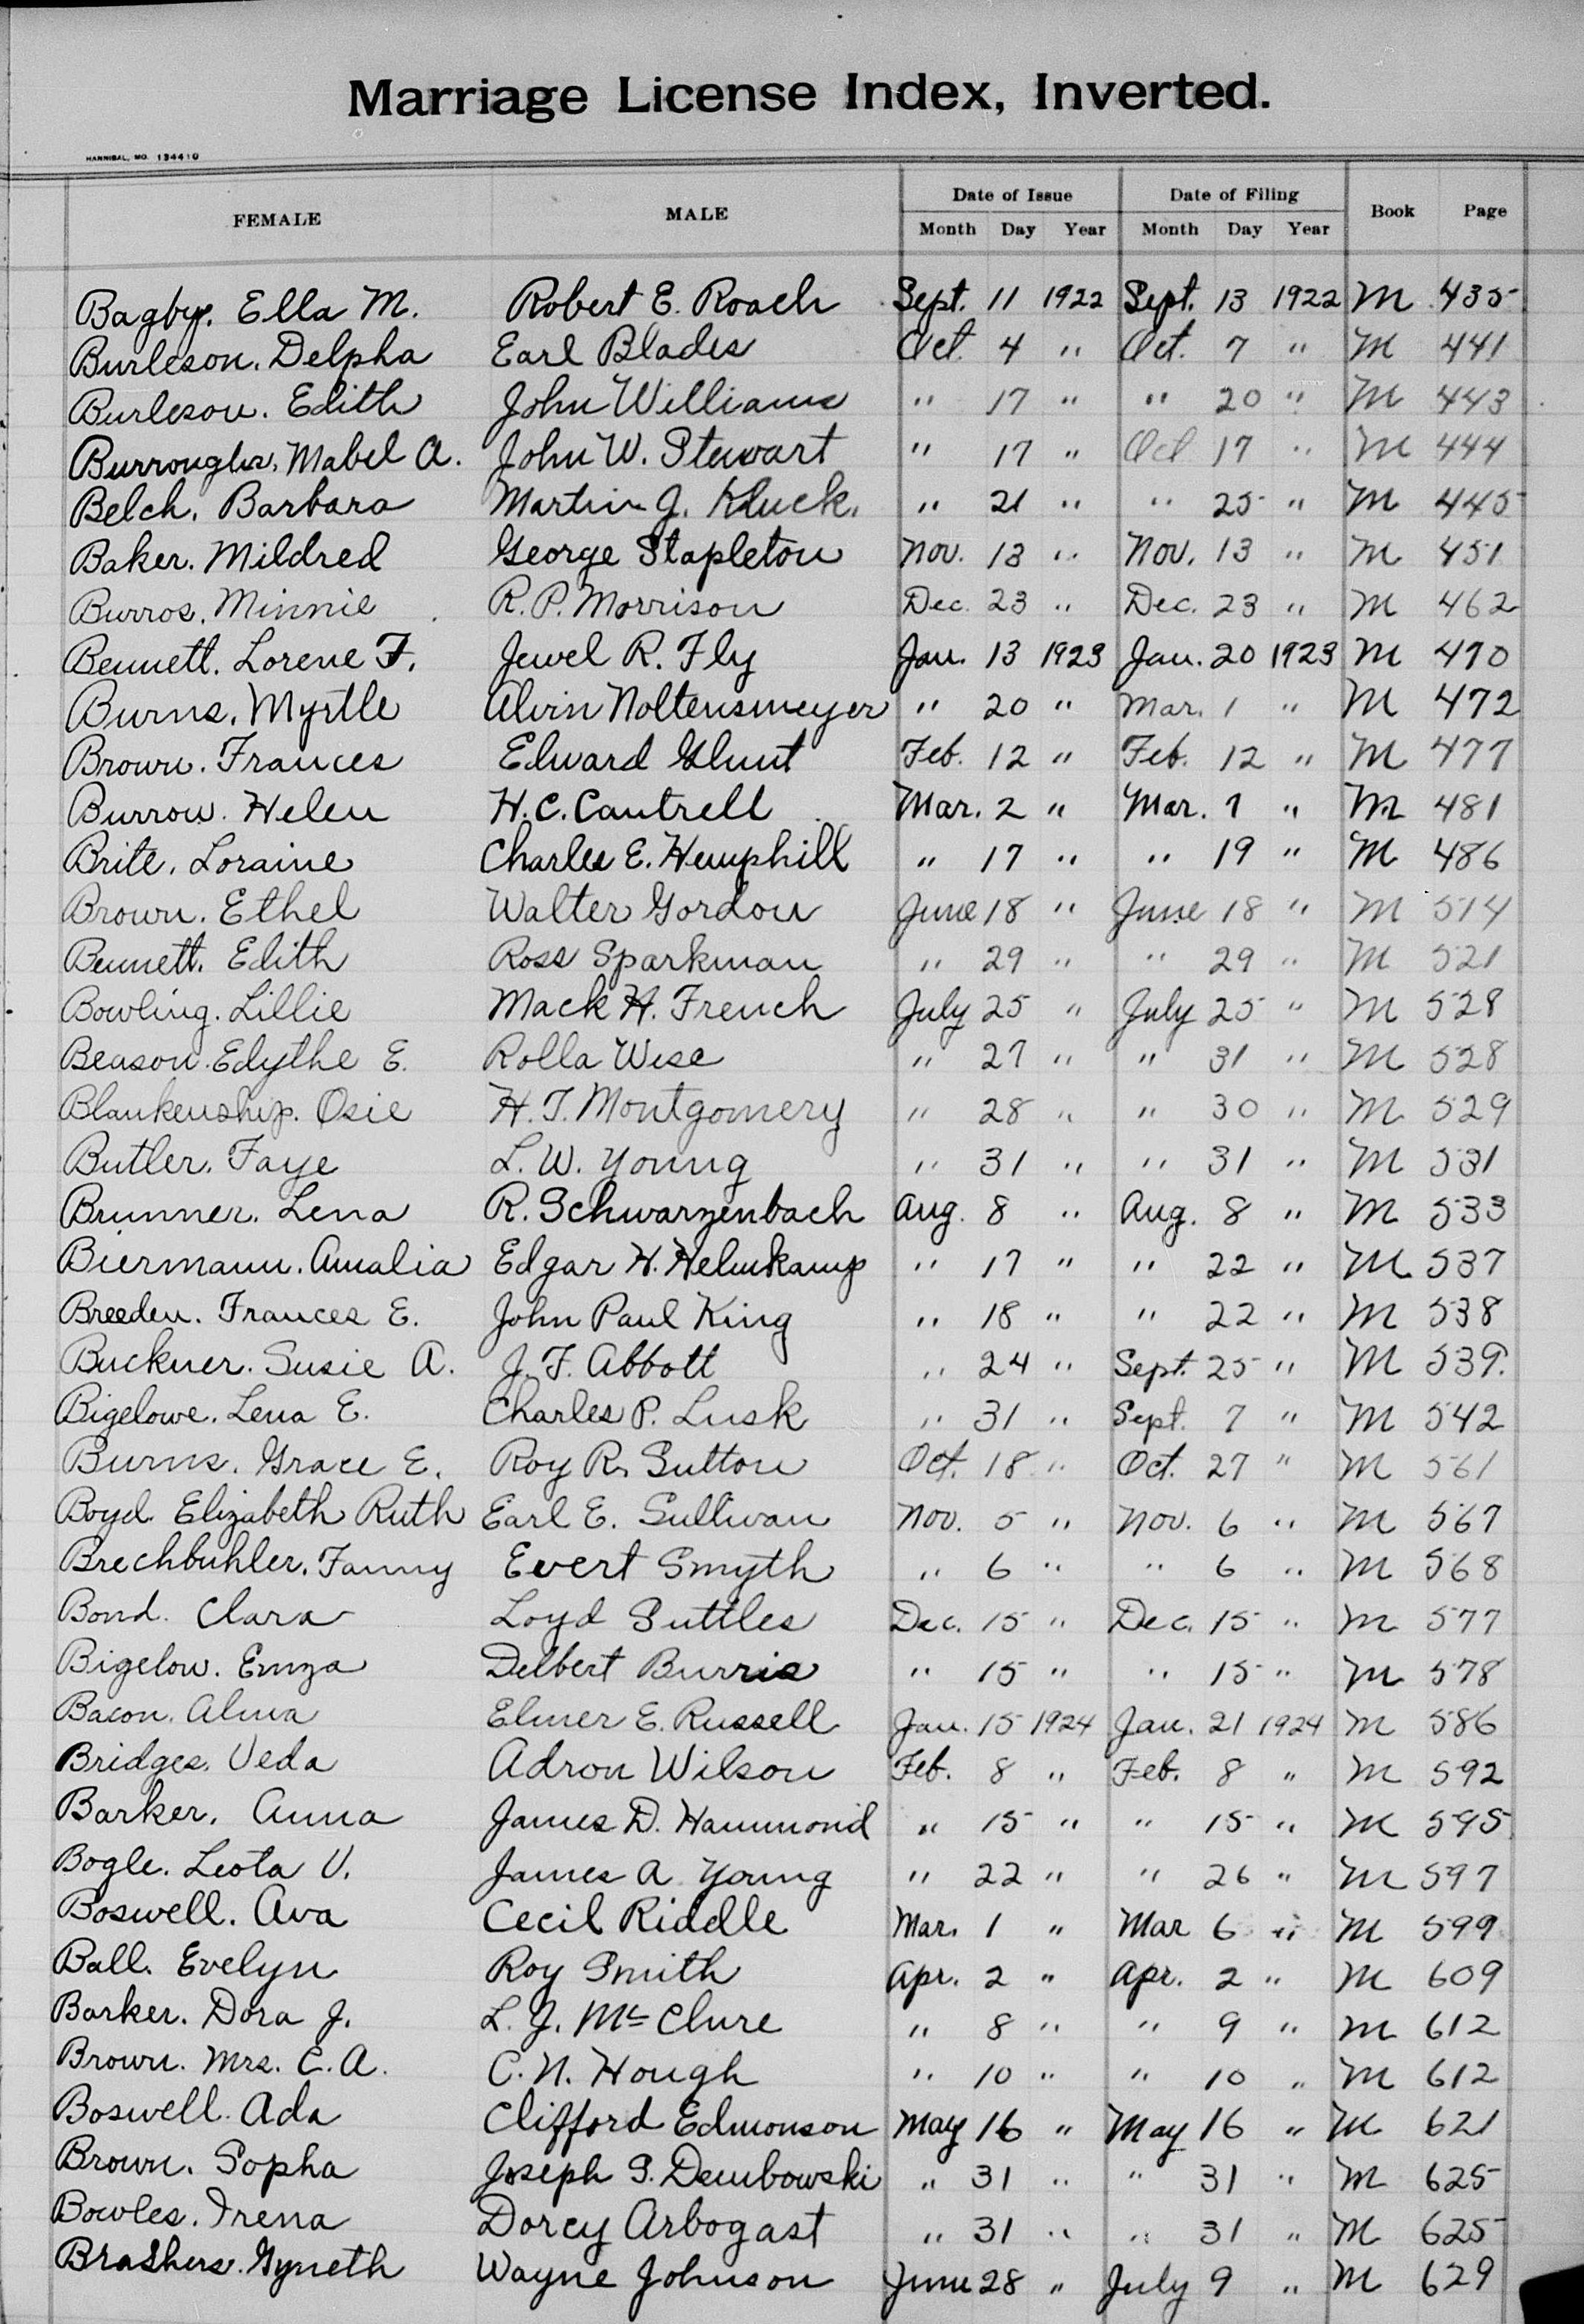 Marriage License Index, Inverted.
HANNIBAL, MO. 134410
FEMALE MALE Date of Issue Date of Filing Book Page
Month Day Year Month Day Year
Bagby, Ella M. Robert E. Roach Sept. 11 1922 Sept. 13 1922 M 435
Burleson, Delpha Earl Blades Oct. 4 " Oct. 7 " M 441
Burleson, Edith John Williams " 17 " " 20 " M 443
Burroughs, Mabel A. John W. Stewart " 17 " Oct 17 " M 444
Belch, Barbara Martin J. Kluck. " 21 " " 25 " M 445
Baker, Mildred George Stapleton Nov. 13 " Nov. 13 " M 451
Burros, Minnie R. P. Morrison Dec. 23 " Dec. 23 " M 462
Bennett, Lorene F. Jewel R. Fly Jan. 13 1923 Jan. 20 1923 M 470
Burns, Myrtle Alvin Noltensmeyer " 20 " Mar. 1 " M 472
Brown, Frances Edward Glunt Feb. 12 " Feb. 12 " M 477
Burrow, Helen H. C. Cantrell Mar. 2 " Mar. 7 " M 481
Brite, Loraine Charles E. Hemphill " 17 " " 19 " M 486
Brown, Ethel Walter Gordon June 18 " June 18 " M 514
Bennett, Edith Ross Sparkman " 29 " " 29 " M 521
Bowling, Lillie Mack H. French July 25 " July 25 " M 528
Beason, Edythe E. Rolla Wise " 27 " " 31 " M 528
Blankenship, Osie H. T. Montgomery " 28 " " 30 " M 529
Butler, Faye L. W. Young " 31 " " 31 " M 531
Brunner, Lena R. Schwarzenbach Aug. 8 " Aug. 8 " M 533
Biermann, Amalia Edgar H. Helmkamp " 17 " " 22 " M 537
Breeden, Frances E. John Paul King " 18 " " 22 " M 538
Buckner, Susie A. J. F. Abbott " 24 " Sept. 25 " M 539.
Bigelowe, Lena E. Charles P. Lusk " 31 " Sept. 7 " M 542
Burns, Grace E. Roy R. Sutton Oct. 18 " Oct. 27 " M 561
Boyd, Elizabeth Ruth Earl E. Sullivan Nov. 5 " Nov. 6 " M 567
Brechbuhler, Fanny Evert Smyth " 6 " " 6 " M 568
Bond, Clara Loyd Suttles Dec. 15 " Dec. 15 " M 577
Bigelow, Emza Delbert Burris " 15 " " 15 " M 578
Bacon, Alma Elmer E. Russell Jan. 15 1924 Jan. 21 1924 M 586
Bridges, Veda Adron Wilson Feb. 8 " Feb. 8 " M 592
Barker, Anna James D. Hammond " 15 " " 15 " M 595
Bogle, Leota V. James A Young " 22 " " 26 " M 597
Boswell, Ava Cecil Riddle Mar. 1 " Mar 6 " M 599
Ball, Evelyn Roy Smith Apr. 2 " Apr. 2 " M 609
Barker, Dora J. L. J. McClure " 8 " " 9 " M 612
Brown, Mrs. C. A. C. N. Hough " 10 " " 10 " M 612
Boswell, Ada Clifford Edmonson May 16 " May 16 " M 621
Brown, Sopha Joseph S. Dembowski " 31 " " 31 " M 625
Bowles, Irena Dorcy Arbogast " 31 " " 31 " M 625
Brashers, Gyneth Wayne Johnson June 28 " July 9 " M 629